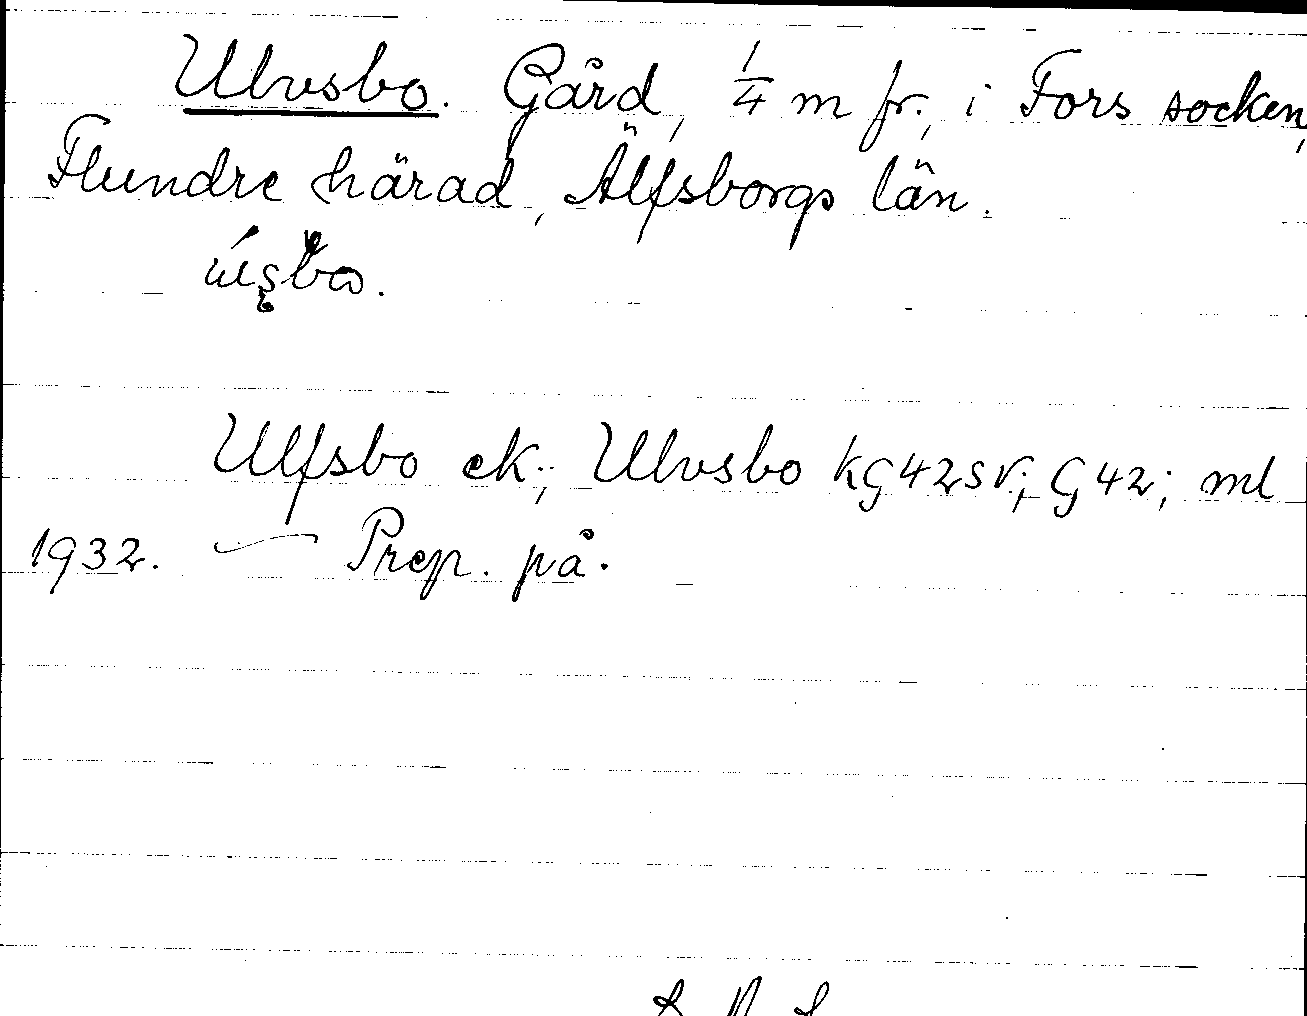 Ulvsbo. Gård, 1/4 m fr., i Fors socken,
Flundre härad, Älfsborgs län.
Ulfsbo ek.; Ulvsbo kG42SV; G42; ml
1932. — Prep. på.